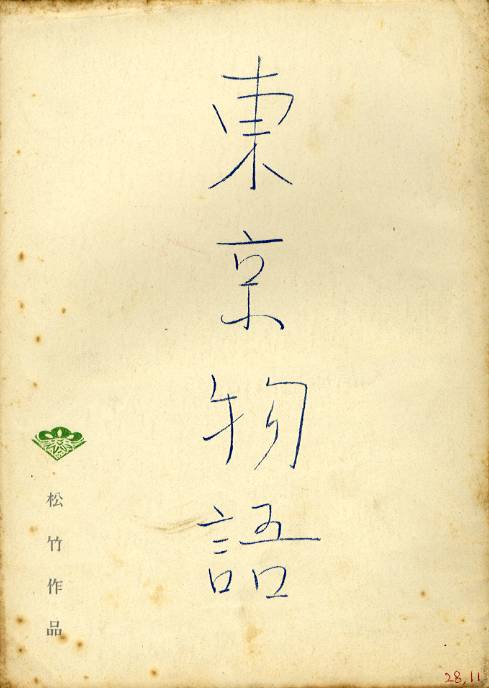 東京物語
松竹作品
28,11